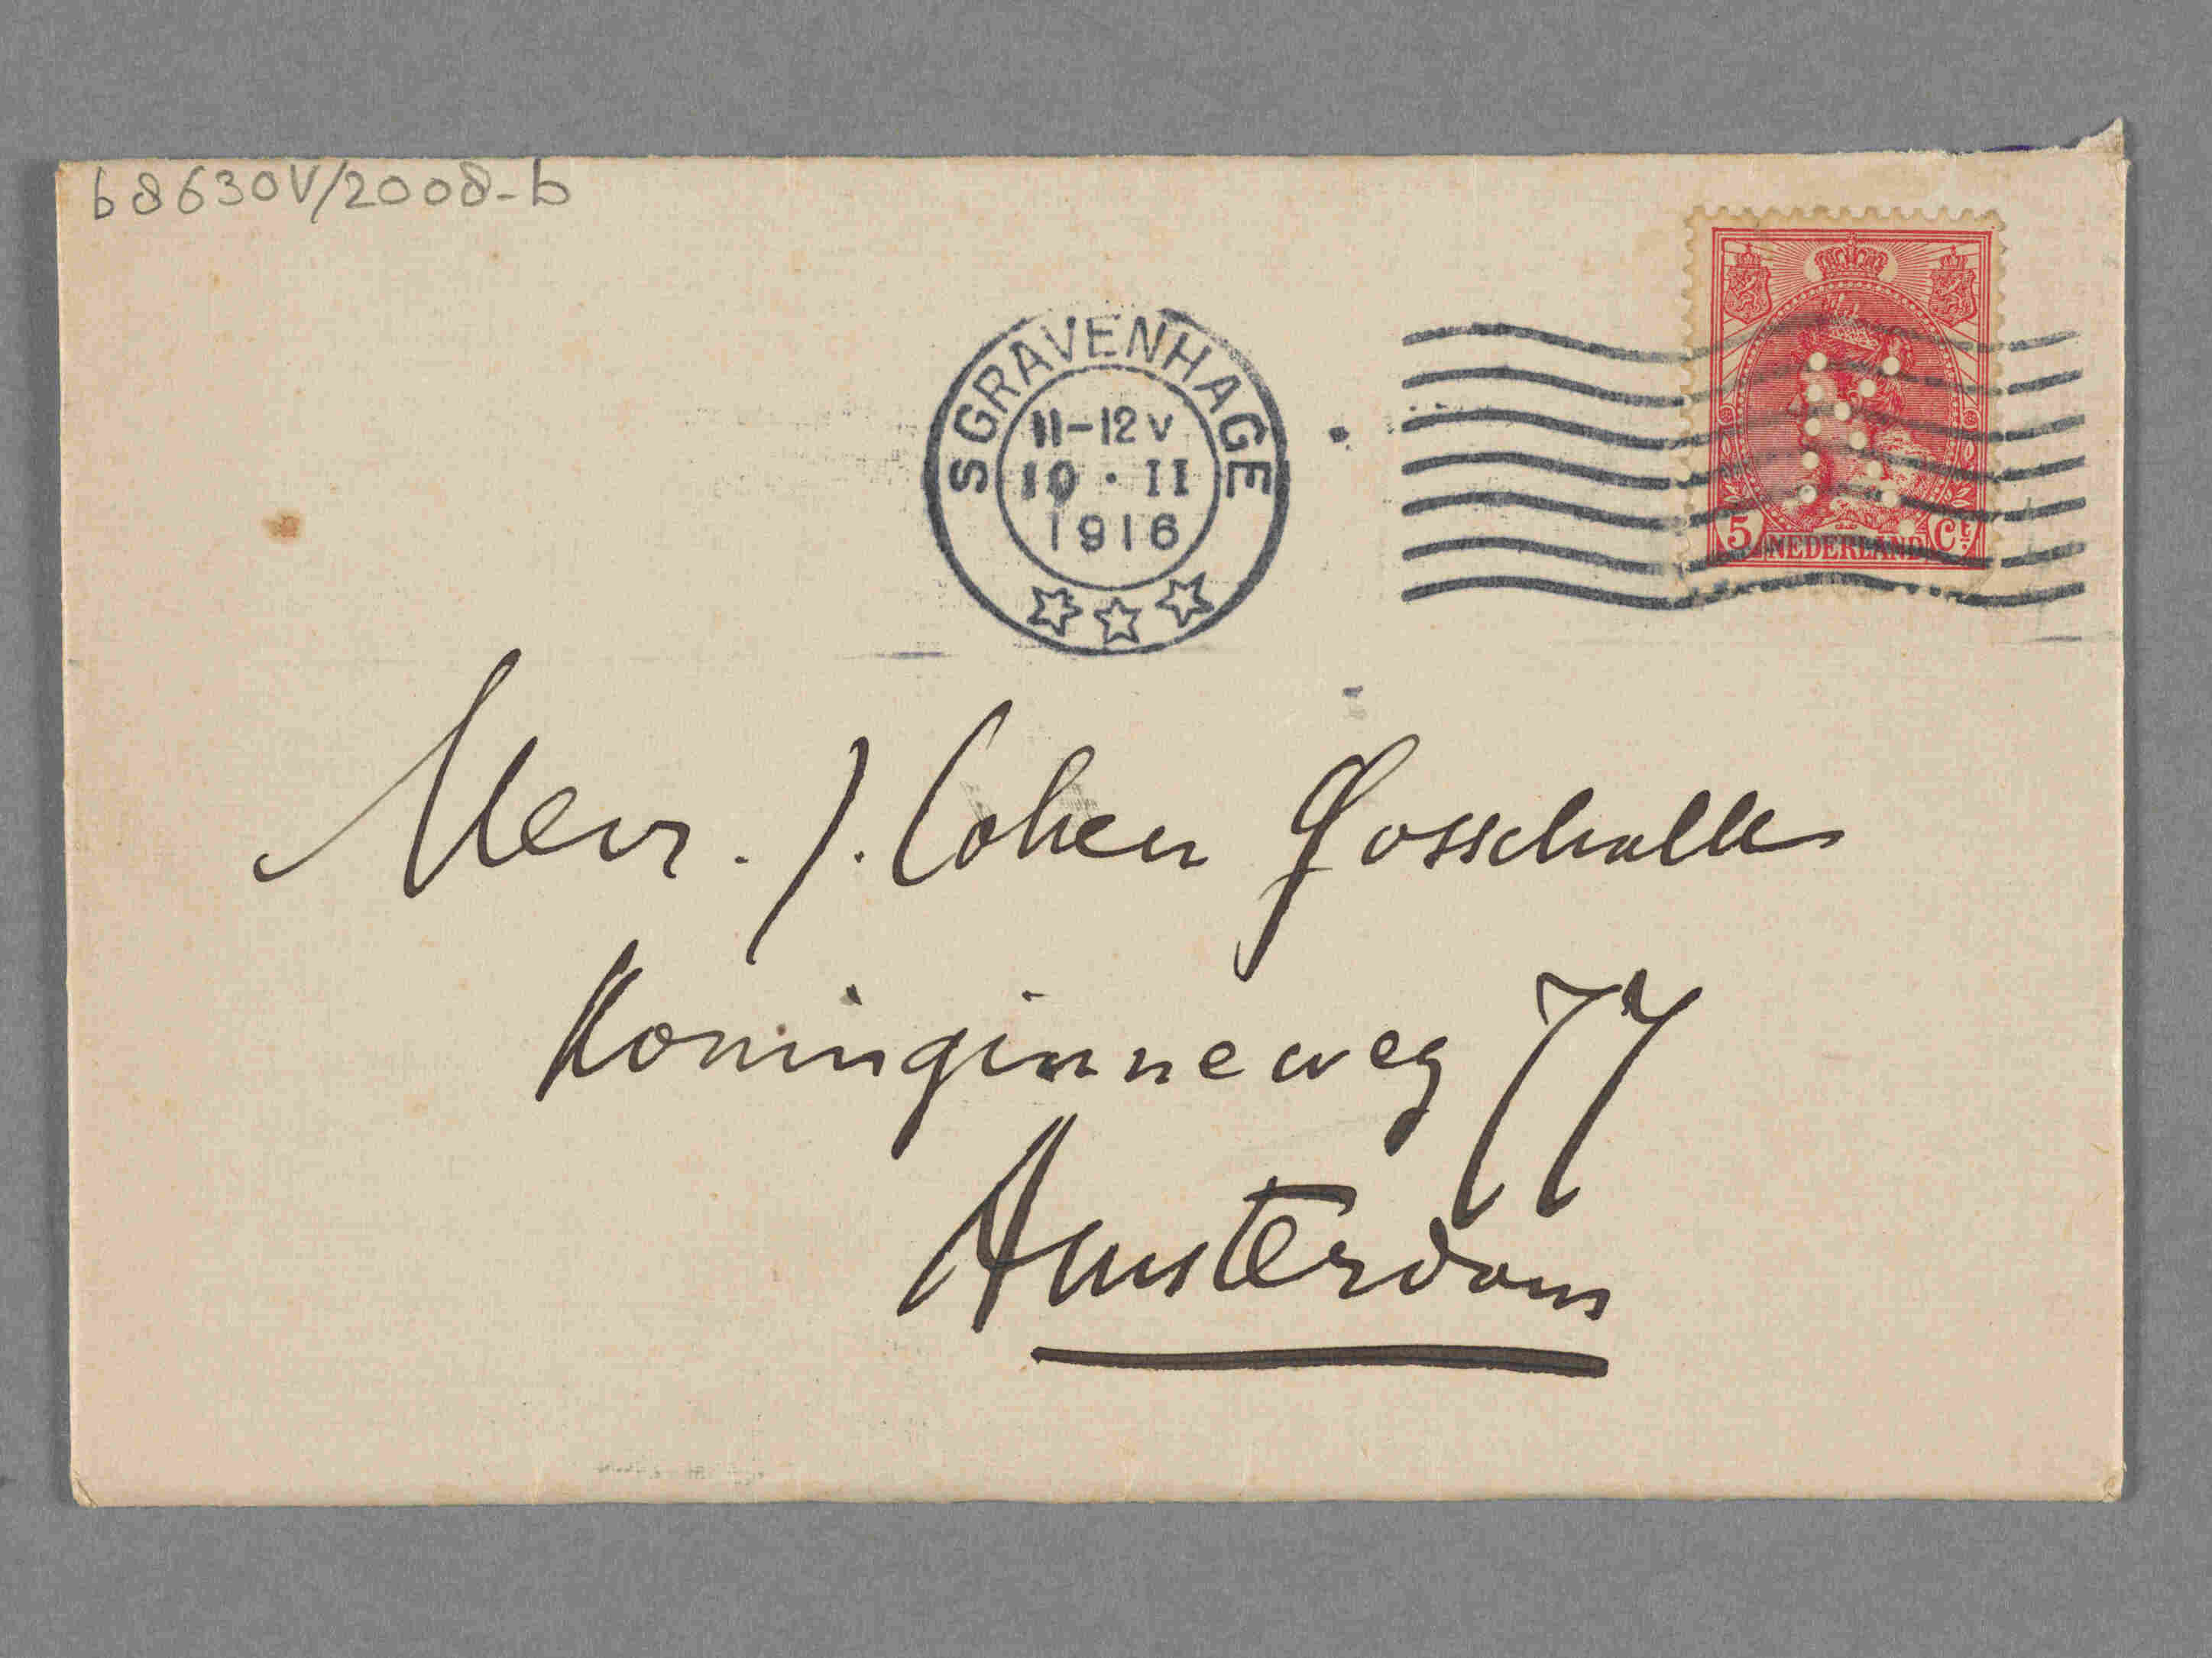 b8630V/2008-b
SGRAVENHAGE
11-12 V
10 · II
1916
5 NEDERLAND Ct.
K
Mevr. J. Cohen Gosschalk
Koninginneweg 77
Amsterdam